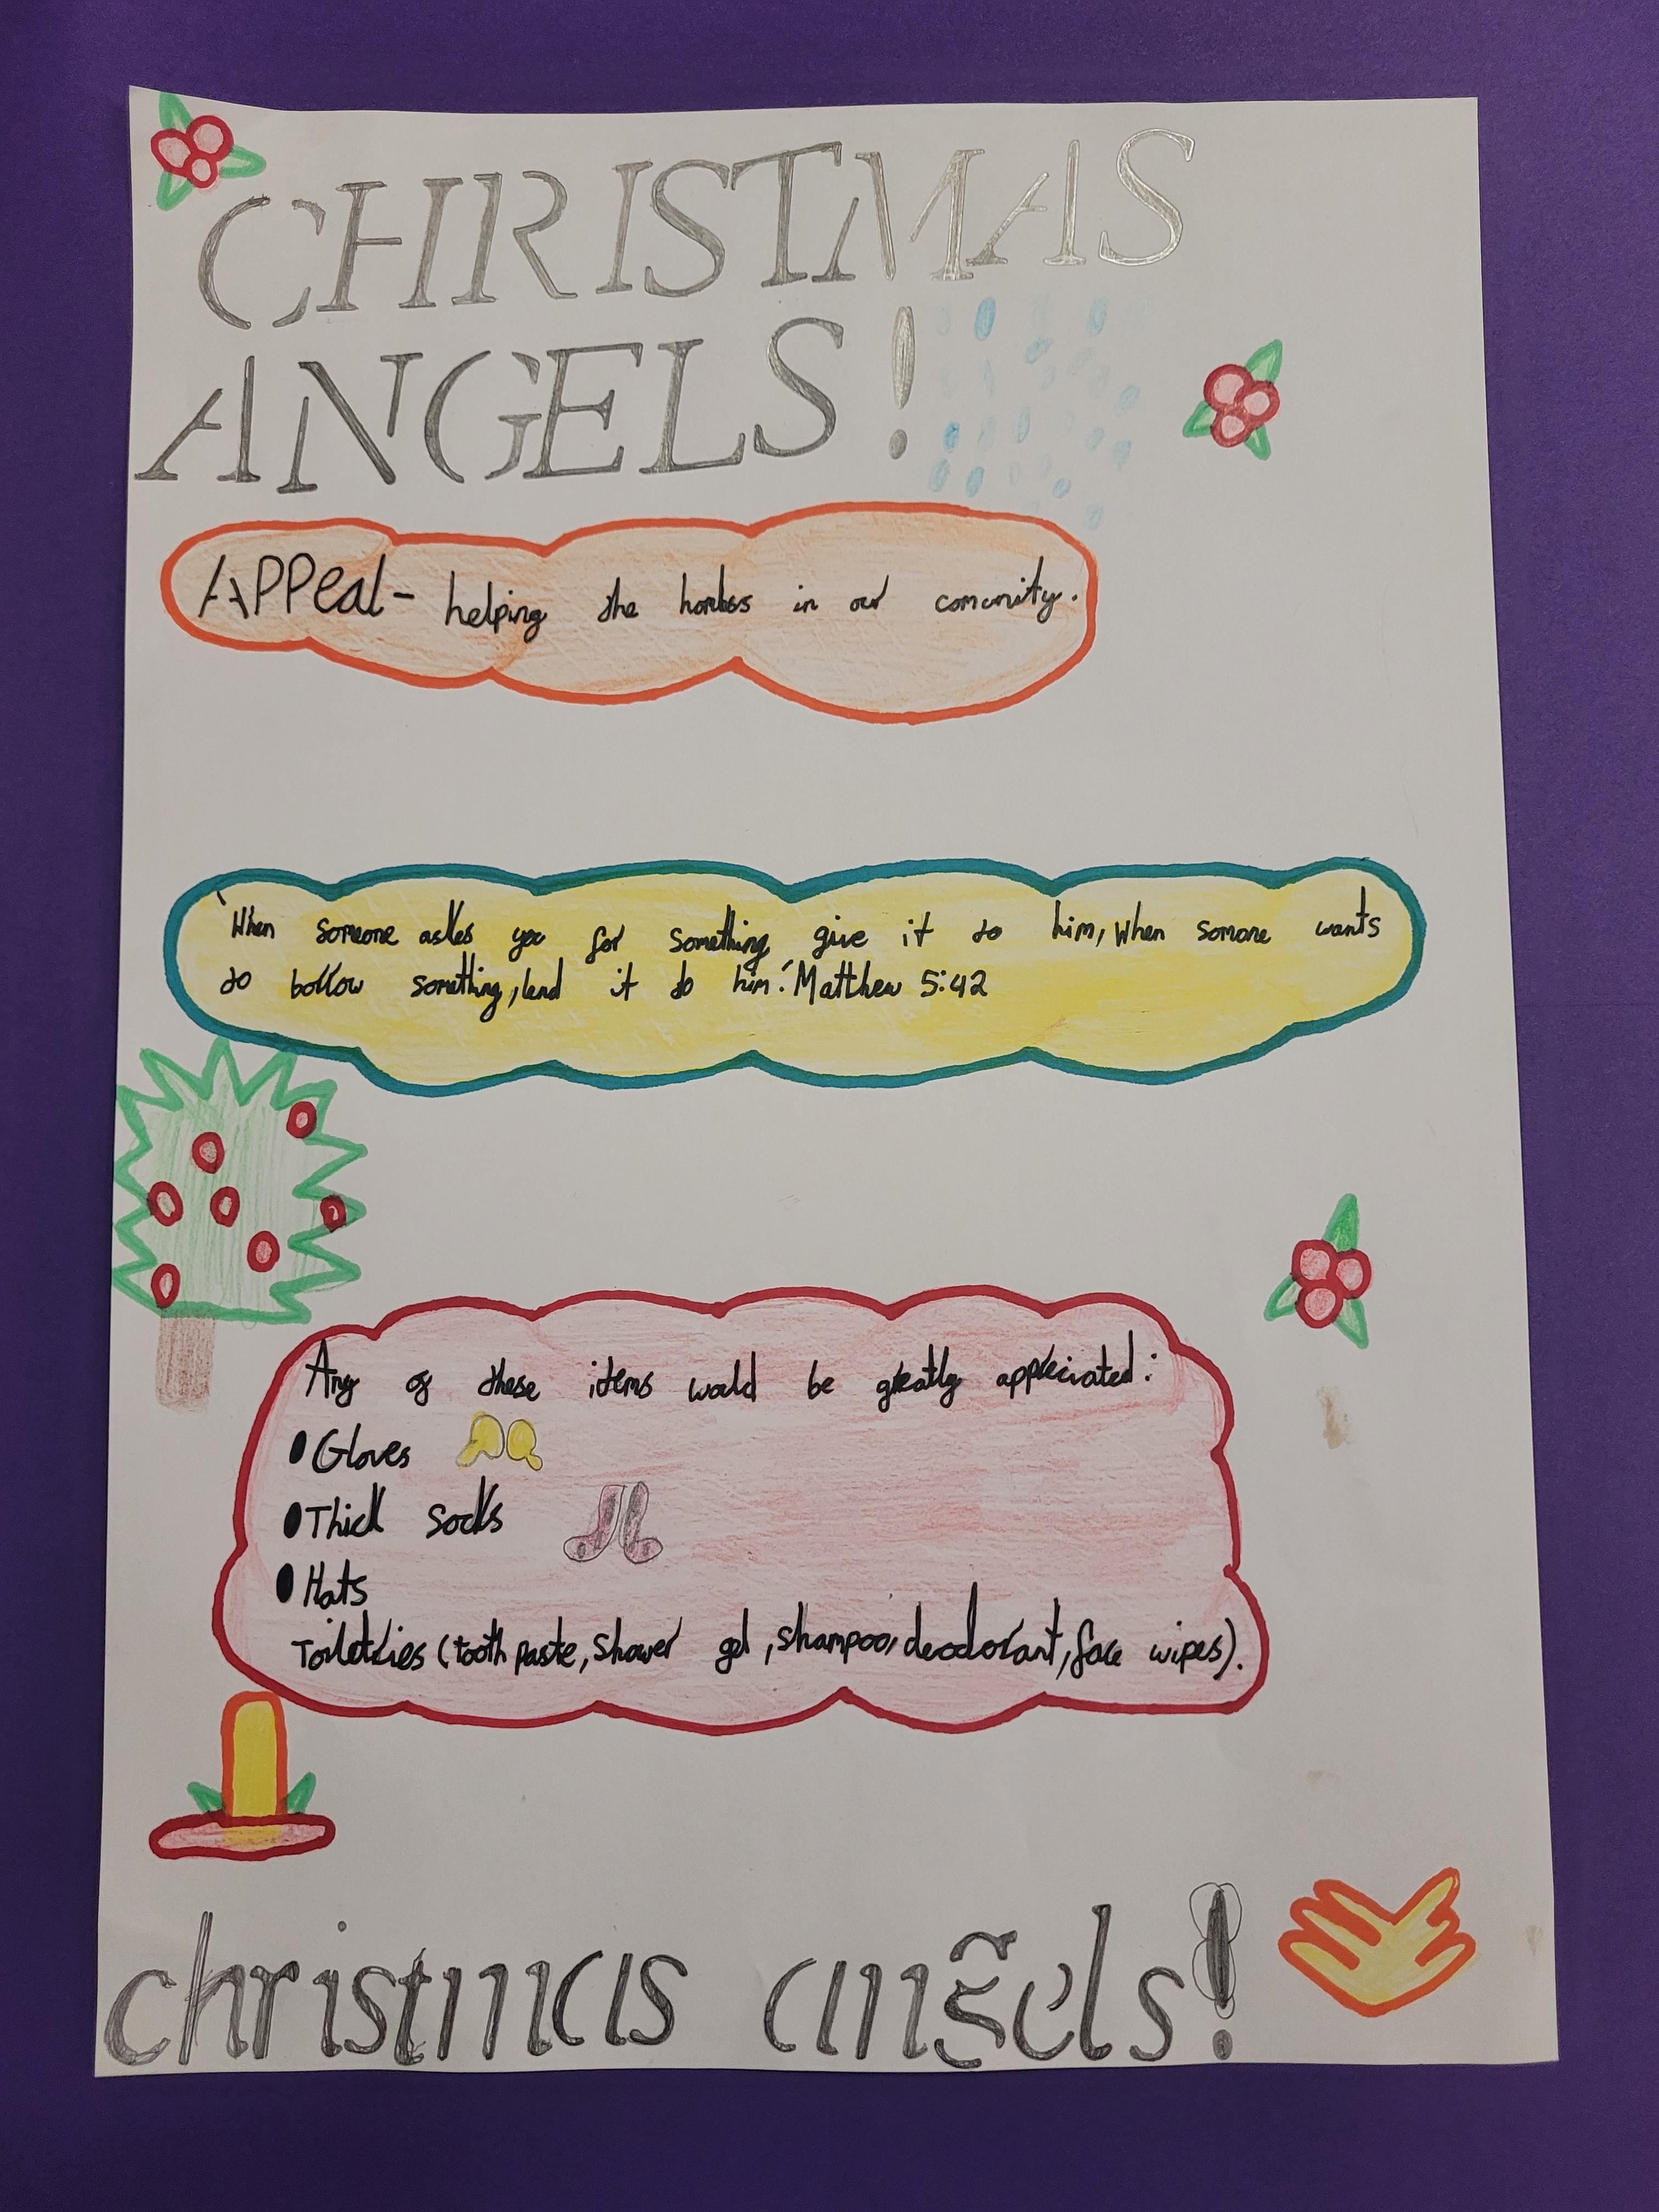 CHRISTMAS
ANGELS!
Appeal- helping the homless in our comunity.
'When someone askes you for something give it to him, When somone wants
to borrow something, lend it to him.' Matthew 5:42
Any of these items would be greatly appreciated:
•Gloves
•Thick socks
•Hats
Toiletries (tooth paste, Shower gel, shampoo, deodorant, face wipes).
christmas angels!